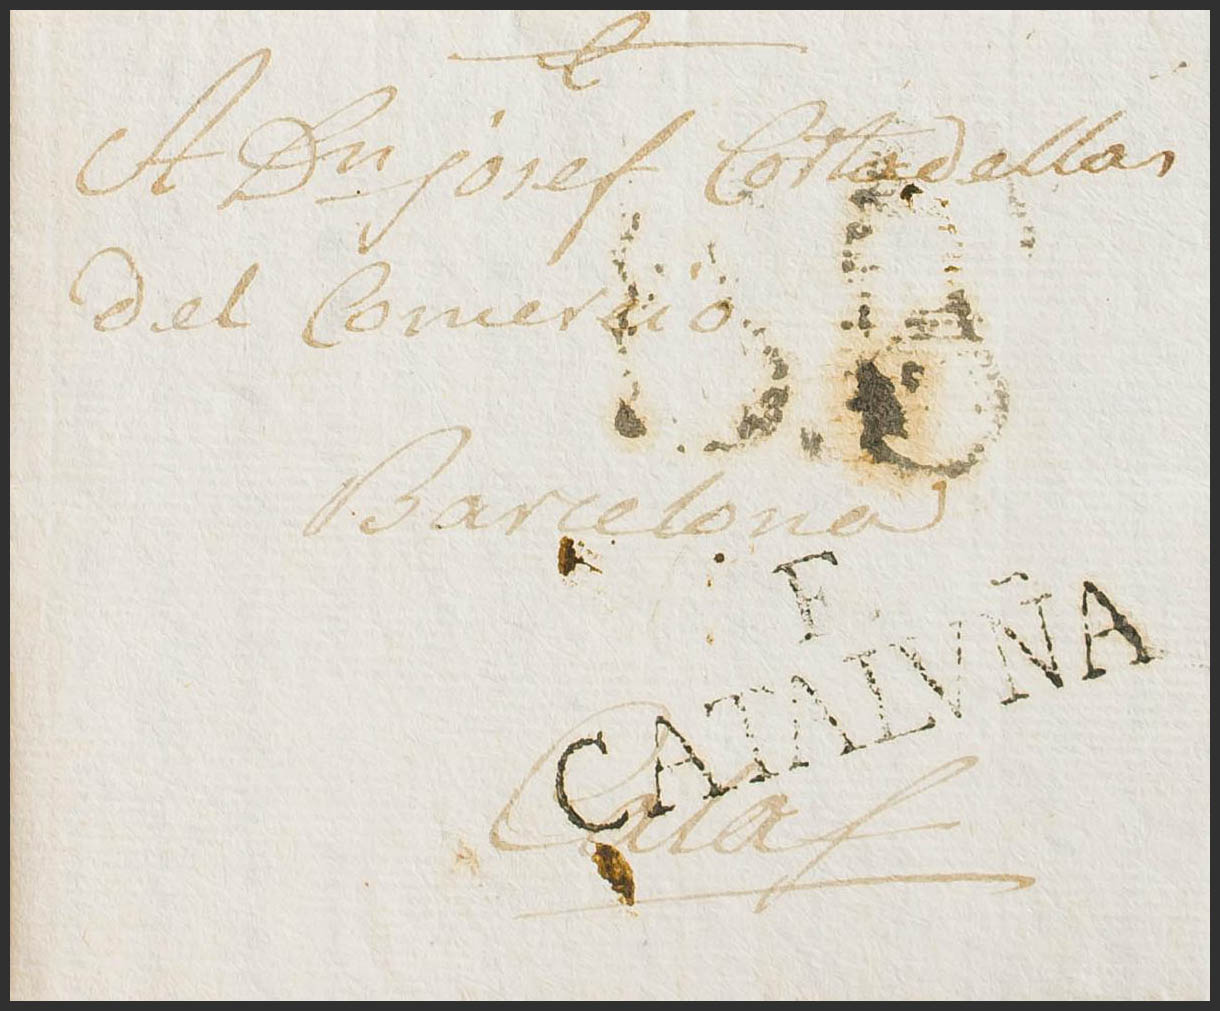 A Dn josef Cortadellas
del Comercio
Barcelona
E.
CATALVÑA
Calaf